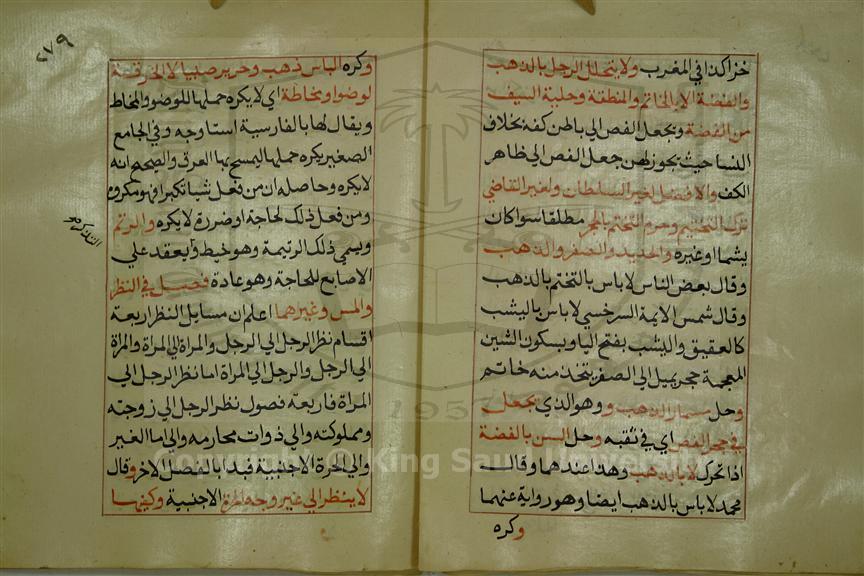 خزا كذا في المغرب ولا يتحلى الرجل بالذهب
والفضة الا بالخاتم والمنطقة وحلية السيف
من الفضة ويجعل الفص الي باطن كفه بخلاف
النسا حيث يجوز لهن جعل الفص الي ظاهر
الكف والافضل لغير السلطان ولغير القاضي
ترك التختم وحرم التختم بالحجر مطلقا سوا كان
يشما او غيره والحديد والصفر والذهب
وقال بعض الناس لا باس بالتختم بالذهب
وقال شمس الايمة السرخسي لا باس باليشب
كالعقيق واليشب بفتح اليا وبسكون الشين
المعجمة حجر يميل الي الصفر يتخذ منه خاتم
وحل مسمار الذهب وهو الذي يجعل
في حجر الفص اي في ثقبه وحل السن بالفضة
اذا تحرك لا بالذهب وهذا عندهما وقال
محمد لا باس بالذهب ايضا وهو رواية عنهما
وكره
٢٧٩
وكره الباس ذهب وحرير صبيا لا الخرقة
لوضوا ومخاطة اي لا يكره حملها للوضو والمخاط
ويقال لها بالفارسية وفي الجامع
الصغير يكره حملها ليمسح بها العرق والصحيح انه
لا يكره وحاصله ان من فعل شيا تكبرا فهو مكروه
ومن فعل ذلك لحاجة او ضررة لا يكره والرتم
ويسمي ذلك الرتيمة وهو خيط يعقد علي
الاصابع للحاجة وهو عادة فصل في النظر
والمس وغيرهما اعلم ان مسايل النظر اربعة
اقسام نظر الرجل الي الرجل والمراة الي المراة والمراة
الي الرجل والرجل الي المراة اما نظر الرجل الي
المراة فاربعة فصول نظر الرجل الي زوجته
ومملوكته والي ذوات محارمه والي اما الغير
والي الحرة الاجنبية فبدا بالفصل الاخر وقال
لا ينظر الي غير وجه الحرة الاجنبية وكفيها
Copyright © King Saud University
1957